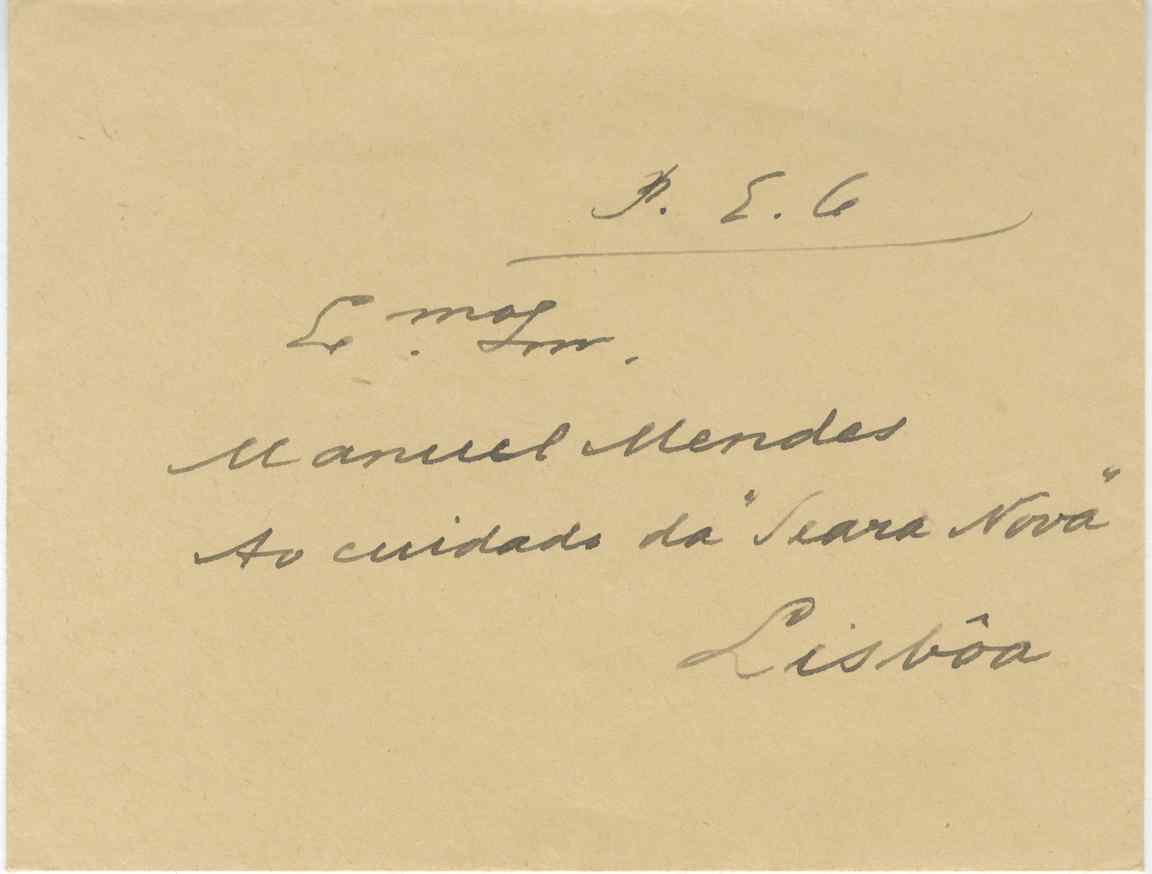 P. E. C
E.mo Snr.
Manuel Mendes
Ao cuidado da "Seara Nova"
Lisbôa